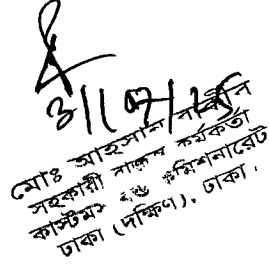 ৩১/০৭/২৫
মোঃ আহসান
সহকারী রাজস্ব কর্মকর্তা
কাস্টমস এন্ড কমিশনারেট
ঢাকা (দক্ষিণ), ঢাকা।